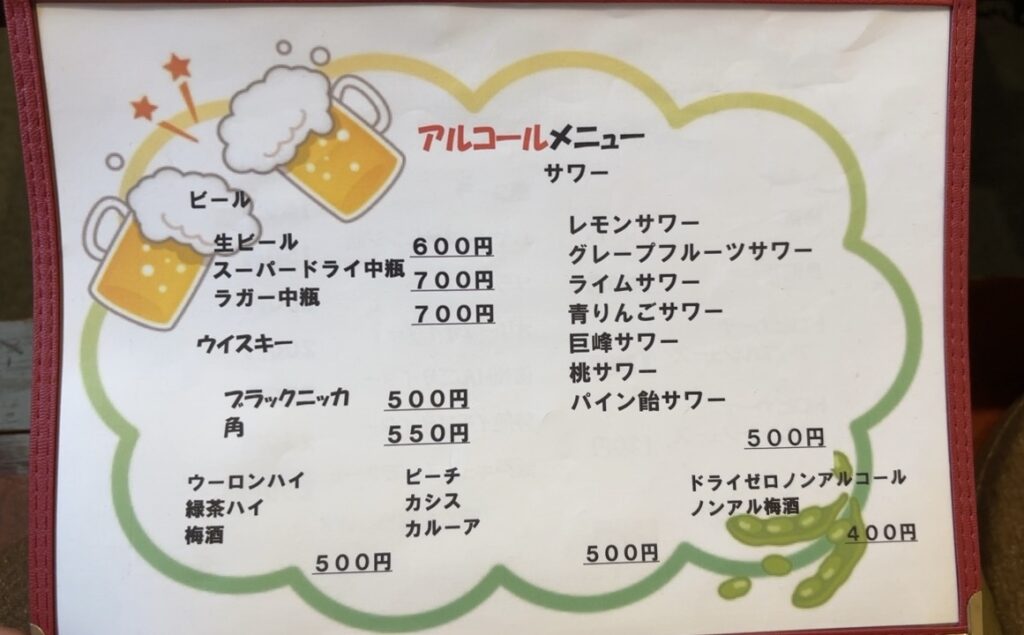 アルコールメニュー
ビール
生ビール 600円
スーパードライ中瓶 700円
ラガー中瓶 700円
ウイスキー
ブラックニッカ 500円
角 550円
サワー
レモンサワー
グレープフルーツサワー
ライムサワー
青りんごサワー
巨峰サワー
桃サワー
パイン飴サワー
500円
ウーロンハイ
緑茶ハイ
梅酒
500円
ピーチ
カシス
カルーア
500円
ドライゼロノンアルコール
ノンアル梅酒
400円